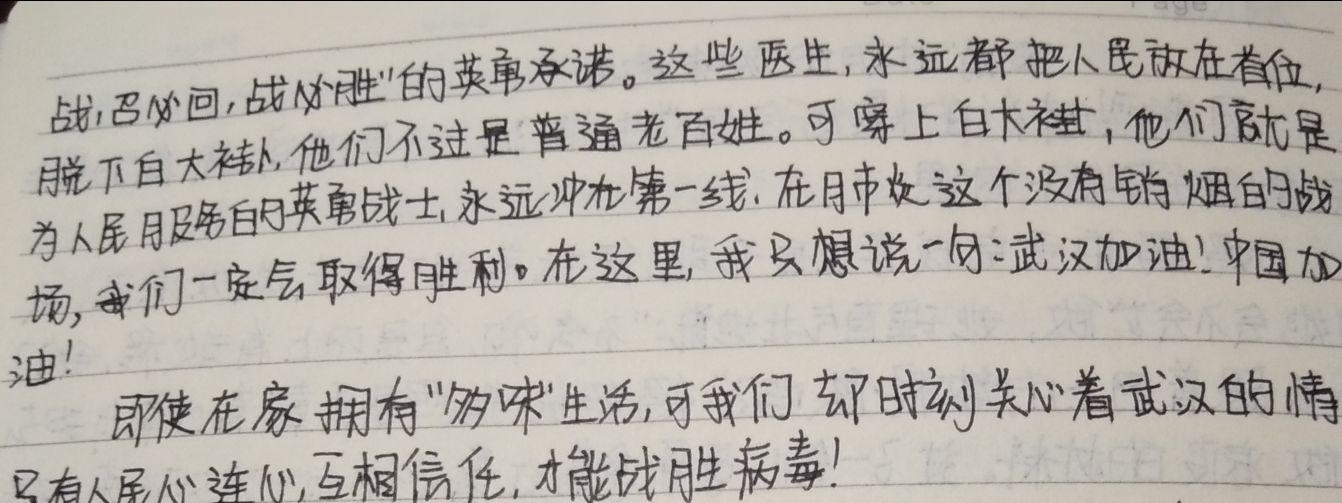 Page
战,召必回,战必胜"的英勇承诺。这些医生,永远都把人民放在首位,
脱下白大褂,他们不过是普通老百姓。可穿上白大褂,他们就是
为人民服务的英勇战士,永远冲在第一线.在肺炎这个没有销烟的战
场,我们一定会取得胜利。在这里,我只想说一句:武汉加油!中国加
油!
即使在家拥有"多味"生活,可我们却时刻关心着武汉的情
只有人民心连心,互相信任,才能战胜病毒!